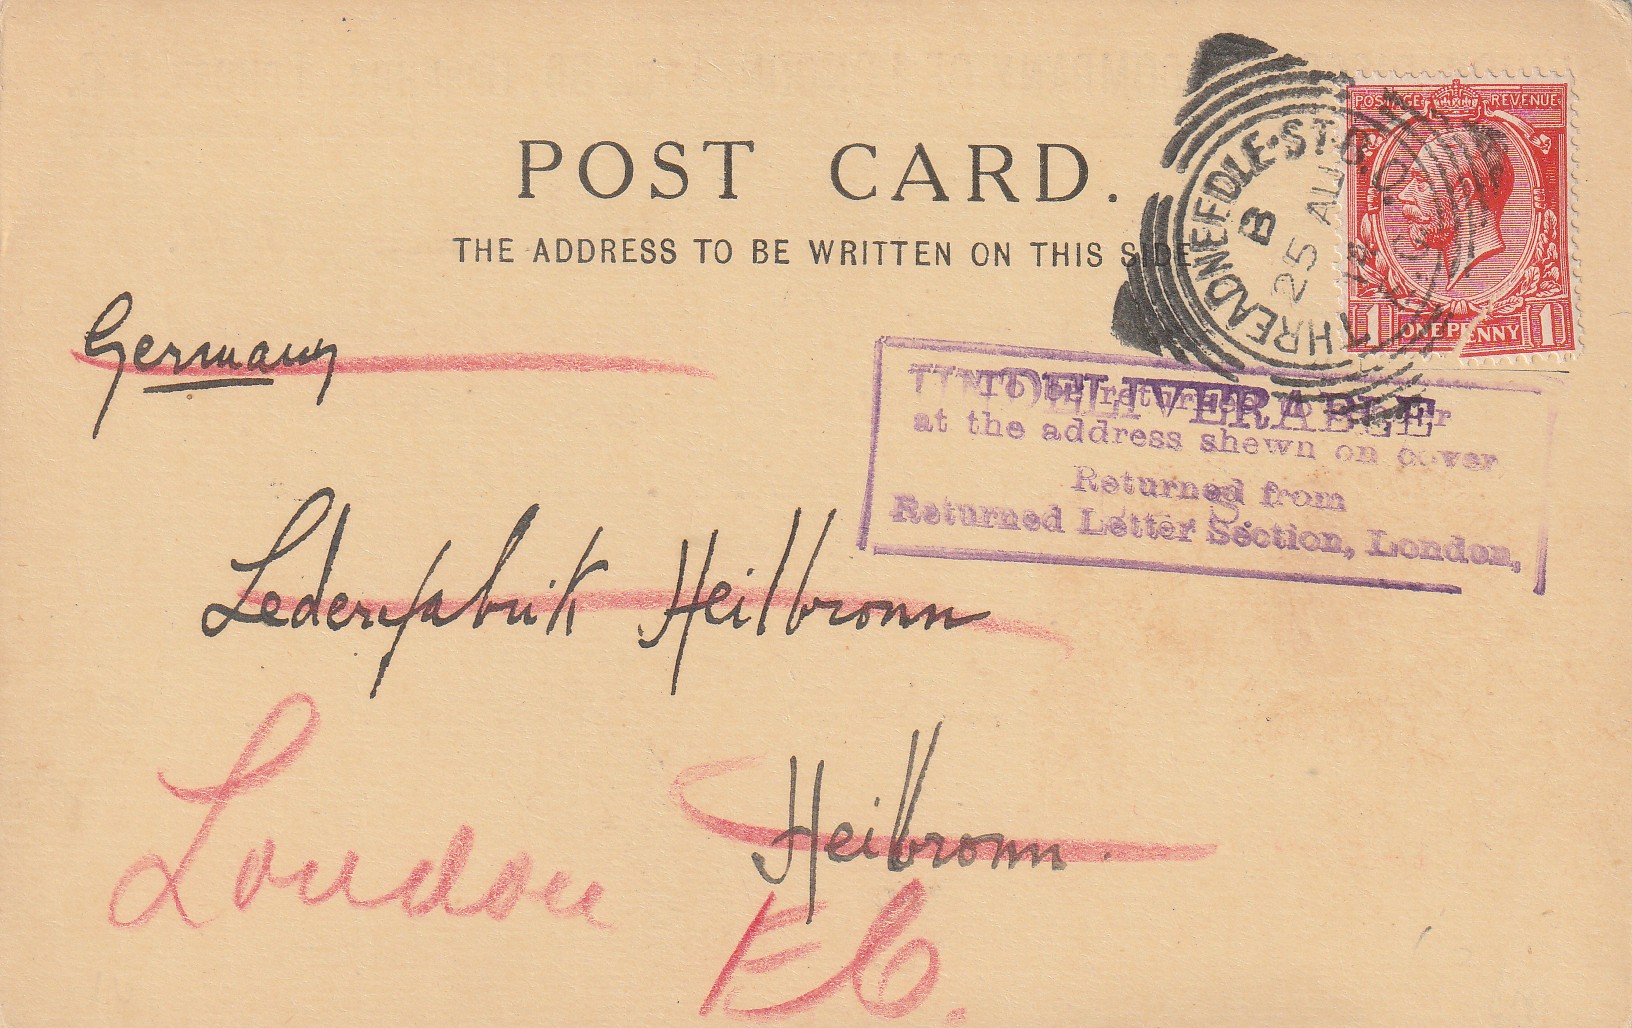 POST CARD.
THE ADDRESS TO BE WRITTEN ON THIS SIDE
THREADNEEDLE·ST·B.O
B
25 AU
14
POSTAGE REVENUE
1 ONE PENNY 1
Germany
UNDELIVERABLE
To be returned to sender
at the address shewn on cover
Returned from
Returned Letter Section, London,
Lederfabrik Heilbronn
Heilbronn.
London
EC.